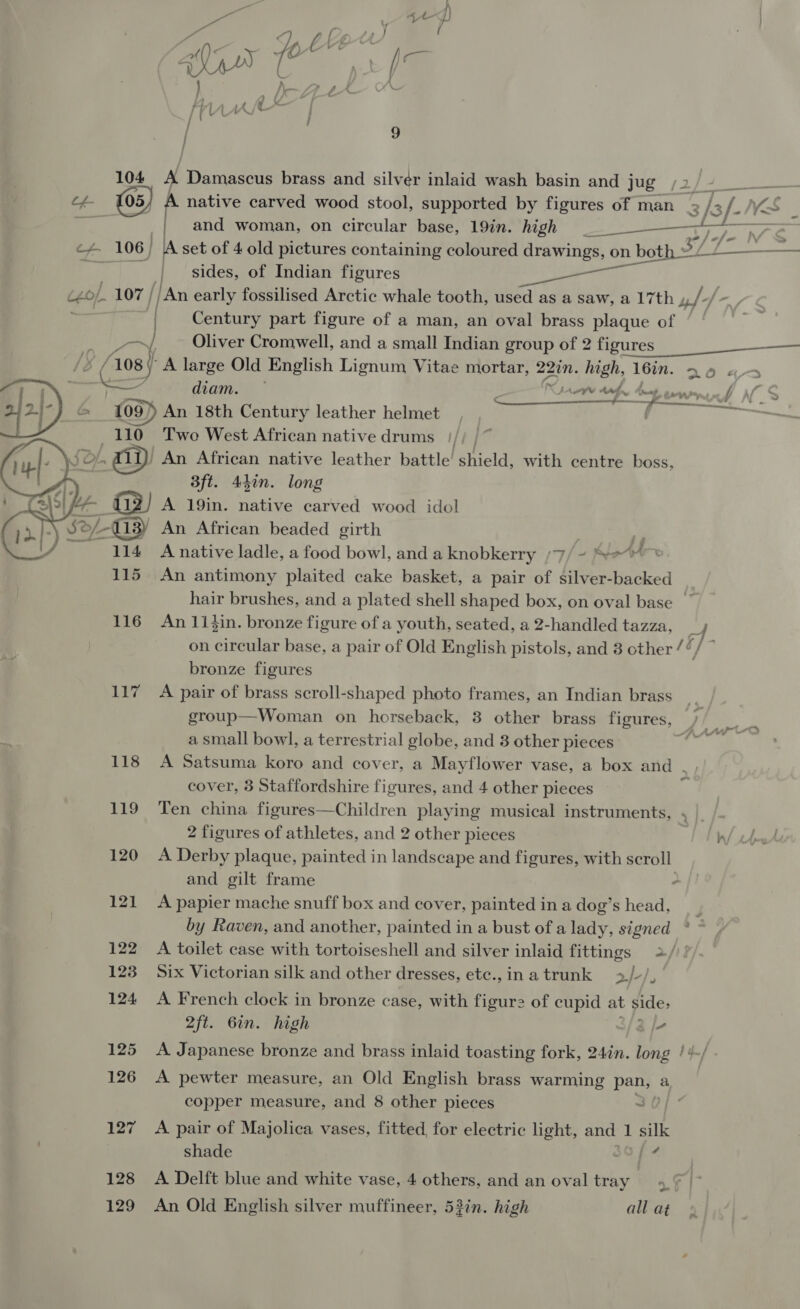 9
104 A Damascus brass and silver inlaid wash basin and jug
105 A native carved wood stool, supported by figures of man
and woman, on circular base, 19in. high
106 A set of 4 old pictures containing coloured drawings, on both
sides, of Indian figures
107 An early fossilised Arctic whale tooth, used as a saw, a 17th
Century part figure of a man, an oval brass plaque of
Oliver Cromwell, and a small Indian group of 2 figures
108 A large Old English Lignum Vitae mortar, 22in. high, 16in.
diam.
109 An 18th Century leather helmet
110 Two West African native drums
111 An African native leather battle shield, with centre boss,
3ft. 4½in. long
112 A 19in. native carved wood idol
113 An African beaded girth
114 A native ladle, a food bowl, and a knobkerry
115 An antimony plaited cake basket, a pair of silver-backed
hair brushes, and a plated shell shaped box, on oval base
116 An 11½in. bronze figure of a youth, seated, a 2-handled tazza,
on circular base, a pair of Old English pistols, and 3 other
bronze figures
117 A pair of brass scroll-shaped photo frames, an Indian brass
group—Woman on horseback, 3 other brass figures,
a small bowl, a terrestrial globe, and 3 other pieces
118 A Satsuma koro and cover, a Mayflower vase, a box and
cover, 3 Staffordshire figures, and 4 other pieces
119 Ten china figures—Children playing musical instruments,
2 figures of athletes, and 2 other pieces
120 A Derby plaque, painted in landscape and figures, with scroll
and gilt frame
121 A papier mache snuff box and cover, painted in a dog's head,
by Raven, and another, painted in a bust of a lady, signed
122 A toilet case with tortoiseshell and silver inlaid fittings
123 Six Victorian silk and other dresses, etc., in a trunk
124 A French clock in bronze case, with figure of cupid at side,
2ft. 6in. high
125 A Japanese bronze and brass inlaid toasting fork, 24in. long
126 A pewter measure, an Old English brass warming pan, a
copper measure, and 8 other pieces
127 A pair of Majolica vases, fitted for electric light, and 1 silk
shade
128 A Delft blue and white vase, 4 others, and an oval tray
129 An Old English silver muffineer, 5¾in. high all at